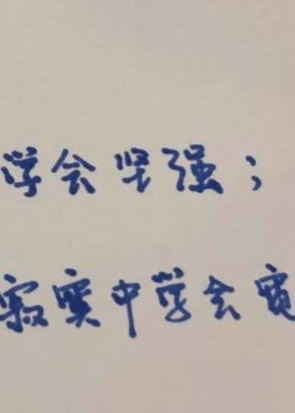 学会坚强；
寂寞中学会宽